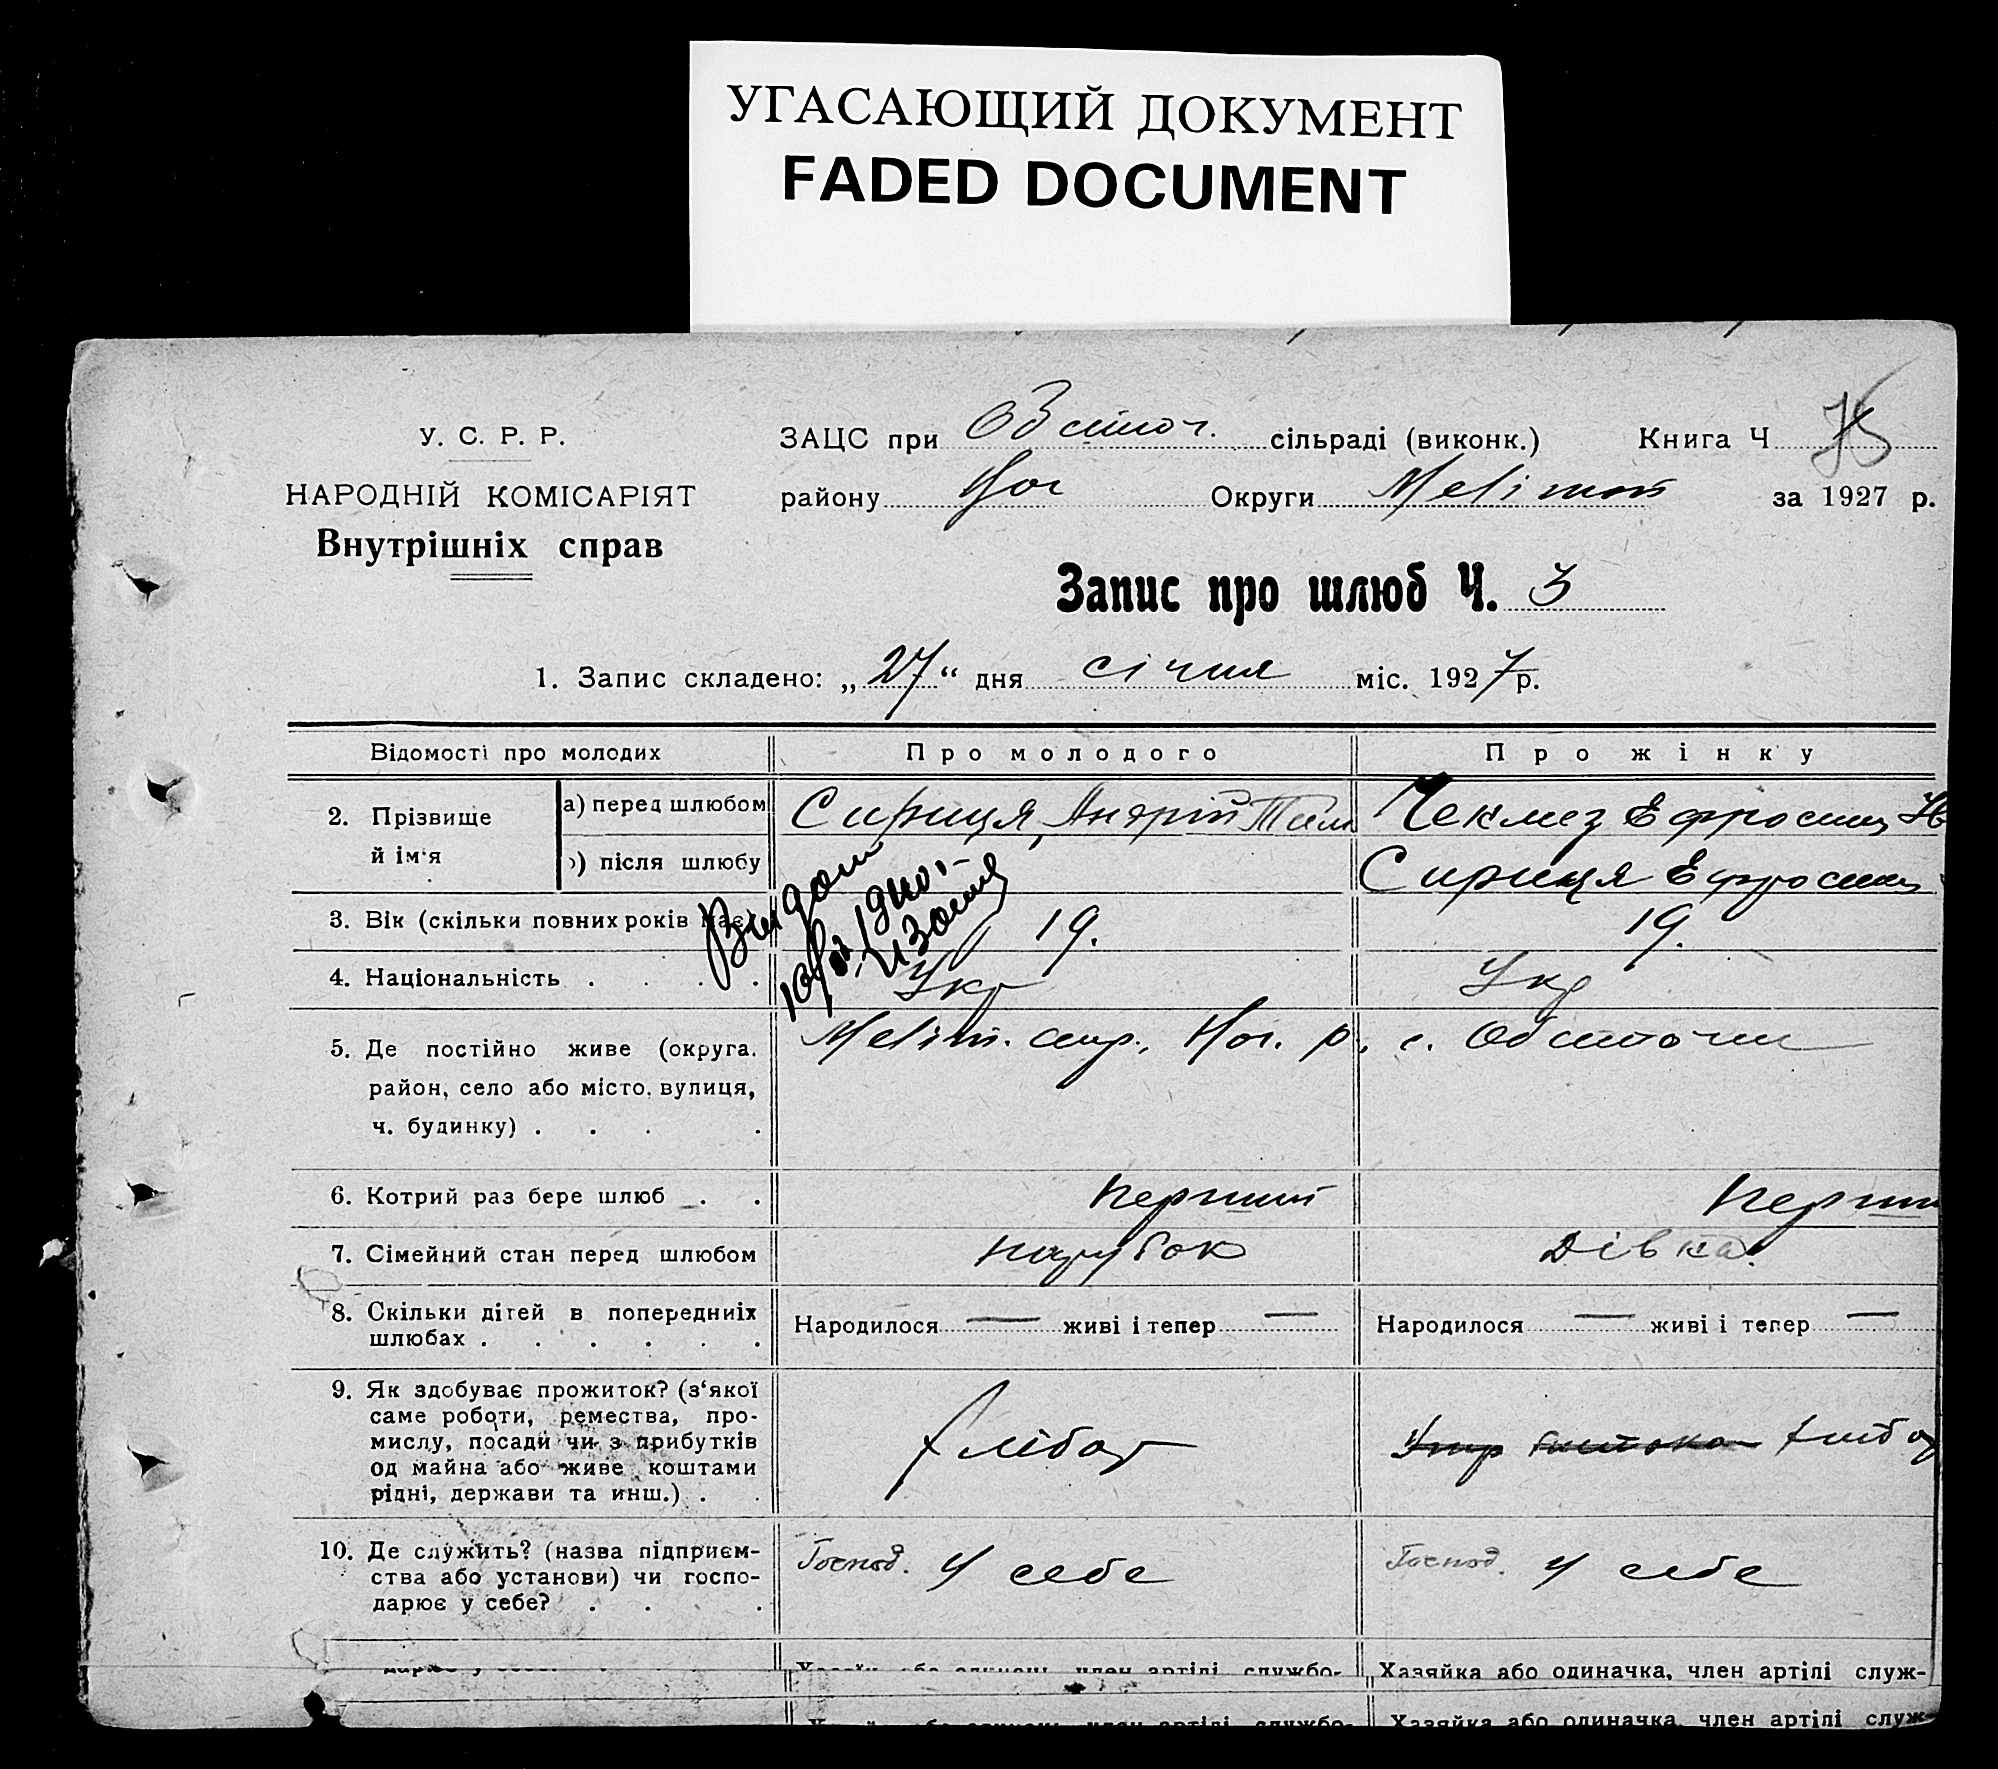 УГАСАЮЩИЙ ДОКУМЕНТ
FADED DOCUMENT
У. С. Р. Р.
НАРОДНІЙ КОМІСАРІЯТ
Внутрішніх справ
ЗАЦС при Обіточ. сільраді (виконк.) Книга Ч
району Ног Округи Меліт за 1927 р.
Запис про шлюб Ч. 3
1. Запис складено: „27“ дня січня міс. 1927 р.
Відомості про молодих Про молодого Про жінку
2. Прізвище й ім'я
а) перед шлюбом Сириця Андрій Тим Чекмез Ефросин
після шлюбу Сириця Ефросин
3. Вік (скільки повних років має) 19. 19.
4. Національність . . . . Укр Укр
5. Де постійно живе (округа, Меліт. окр., Ног. р., с. Обіточн
район, село або місто, вулиця,
ч. будинку) . . . .
6. Котрий раз бере шлюб . . перший перши
7. Сімейний стан перед шлюбом парубок Дівка.
8. Скільки дітей в попередниіх
шлюбах . . . . . .
Народилося — живі і тепер — Народилося — живі і тепер —
9. Як здобуває прожиток? (з'якої
саме роботи, ремества, про-
мислу, посади чи з прибутків
од майна або живе коштами
рідні, держави та инш.) . .
Хлібор Хлібор
10. Де служить? (назва підприєм-
ства або установи) чи госпо-
дарює у себе? . . .
Господ. У себе Господ. У себе
Хазяйка або одиначка, член артілі служ-
Хазяйка або одиначка, член артілі служ-